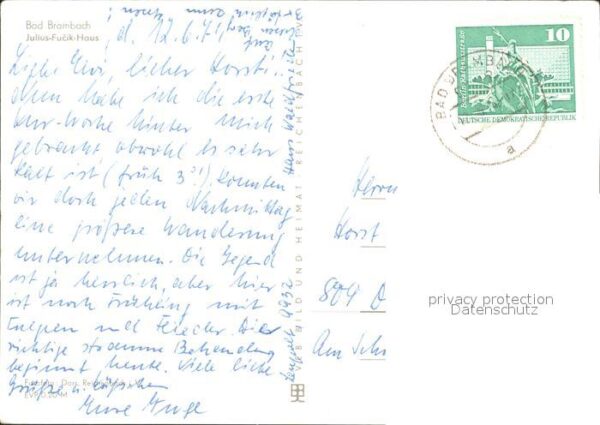 Bad Brambach
Julius-Fučik-Haus
d. 12.6.7
Liebe Evi, lieber Horst!
Nun habe ich die erste
Kur-Woche hinter mich
gebracht obwohl es sehr
kalt ist (früh 3°!), konnten
wir doch jeden Nachmittag
eine größere Wanderung
unternehmen. Die Gegend
ist ja herrlich, aber hier
ist noch Frühling mit
Tulpen und Flieder. Die
richtige Behandlung
beginnt heute. Viele liebe
Grüße u.
Eure Inge
EVP 0,20 M
Haus Waldfrieden
VEB BILD UND HEIMAT REICHENBACH
10
DEUTSCHE DEMOKRATISCHE REPUBLIK
BAD BRAMBACH
a
Herrn
Horst
Am
privacy protection
Datenschutz